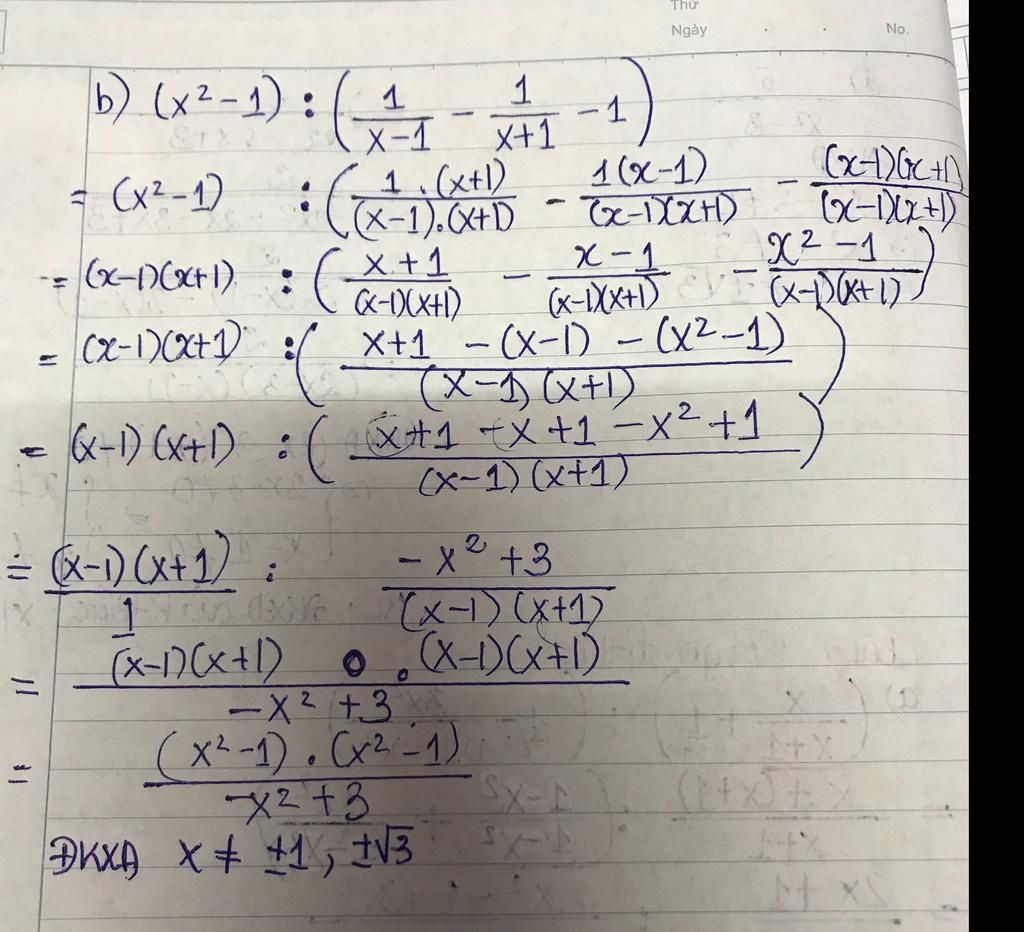 Thứ
Ngày . . No.
b) (x² – 1) : (1/(x–1) – 1/(x+1) – 1)
= (x² – 1) : (1.(x+1)/((x–1).(x+1)) – 1(x–1)/((x–1)(x+1)) – (x–1)(x+1)/((x–1)(x+1))
= (x–1)(x+1) : ((x+1)/((x–1)(x+1)) – (x–1)/((x–1)(x+1)) – (x²–1)/((x–1)(x+1)))
= (x–1)(x+1) : ((x+1 – (x–1) – (x²–1))/((x–1)(x+1)))
= (x–1)(x+1) : ((x+1 – x + 1 – x² + 1)/((x–1)(x+1)))
= (x–1)(x+1)/1 : (–x² + 3)/((x–1)(x+1))
= (x–1)(x+1) . (x–1)(x+1)/(–x² + 3)
= (x²–1) . (x²–1)/(–x² + 3)
ĐKXĐ x ≠ ±1, ±√3